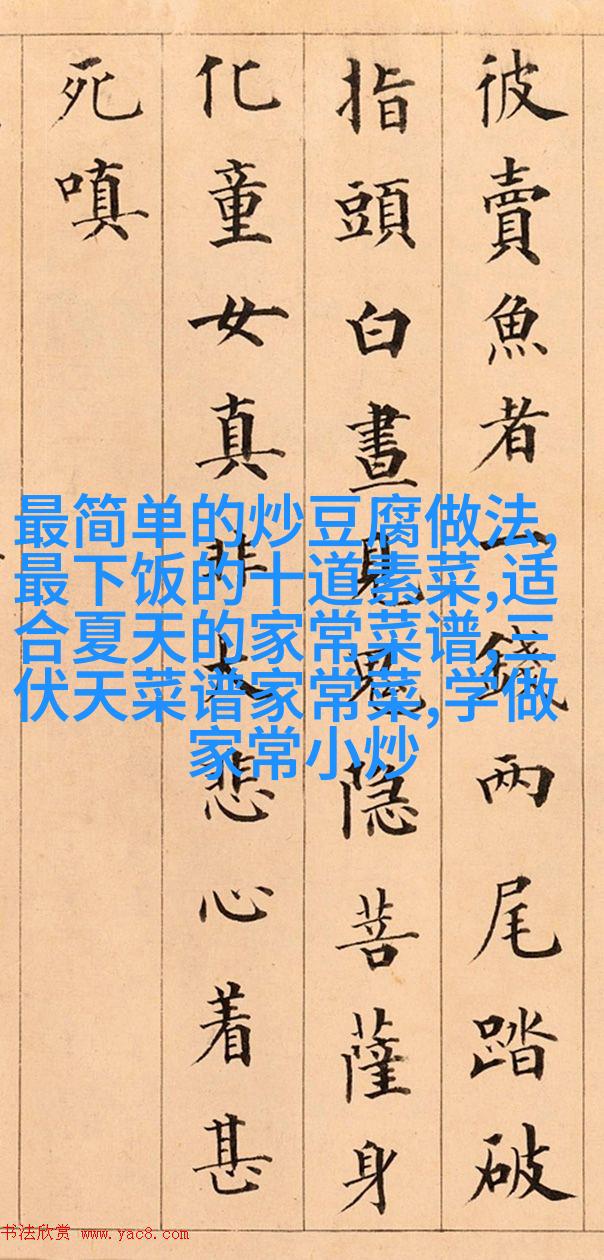 彼賣魚者一錢兩尾踏破
指頭白晝見鬼隐菩薩身
化童女真非大悲心着甚
死嗔
最简单的炒豆腐做法,
最下饭的十道素菜,适
合夏天的家常菜谱,三
伏天菜谱家常菜,学做
家常小炒
书法欣赏 www.yac8.com